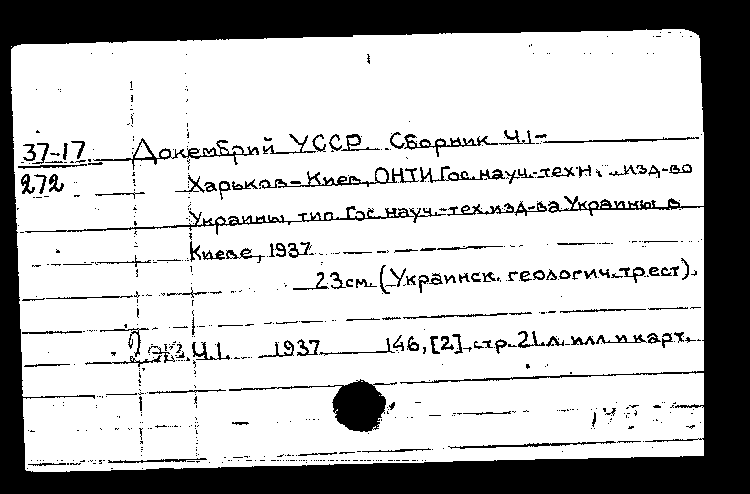 37-17 Докембрий УССР Сборник Ч.1-
272 Харьков-Киев, ОНТИ Гос. науч.-техн. изд-во
Украины, тип. Гос. науч.-тех. изд-ва Украины в
Киеве, 1937
23см. (Украинск. геологич. трест).
2 экз. Ч.1. 1937 146, [2] стр. 21 л. илл и карт.